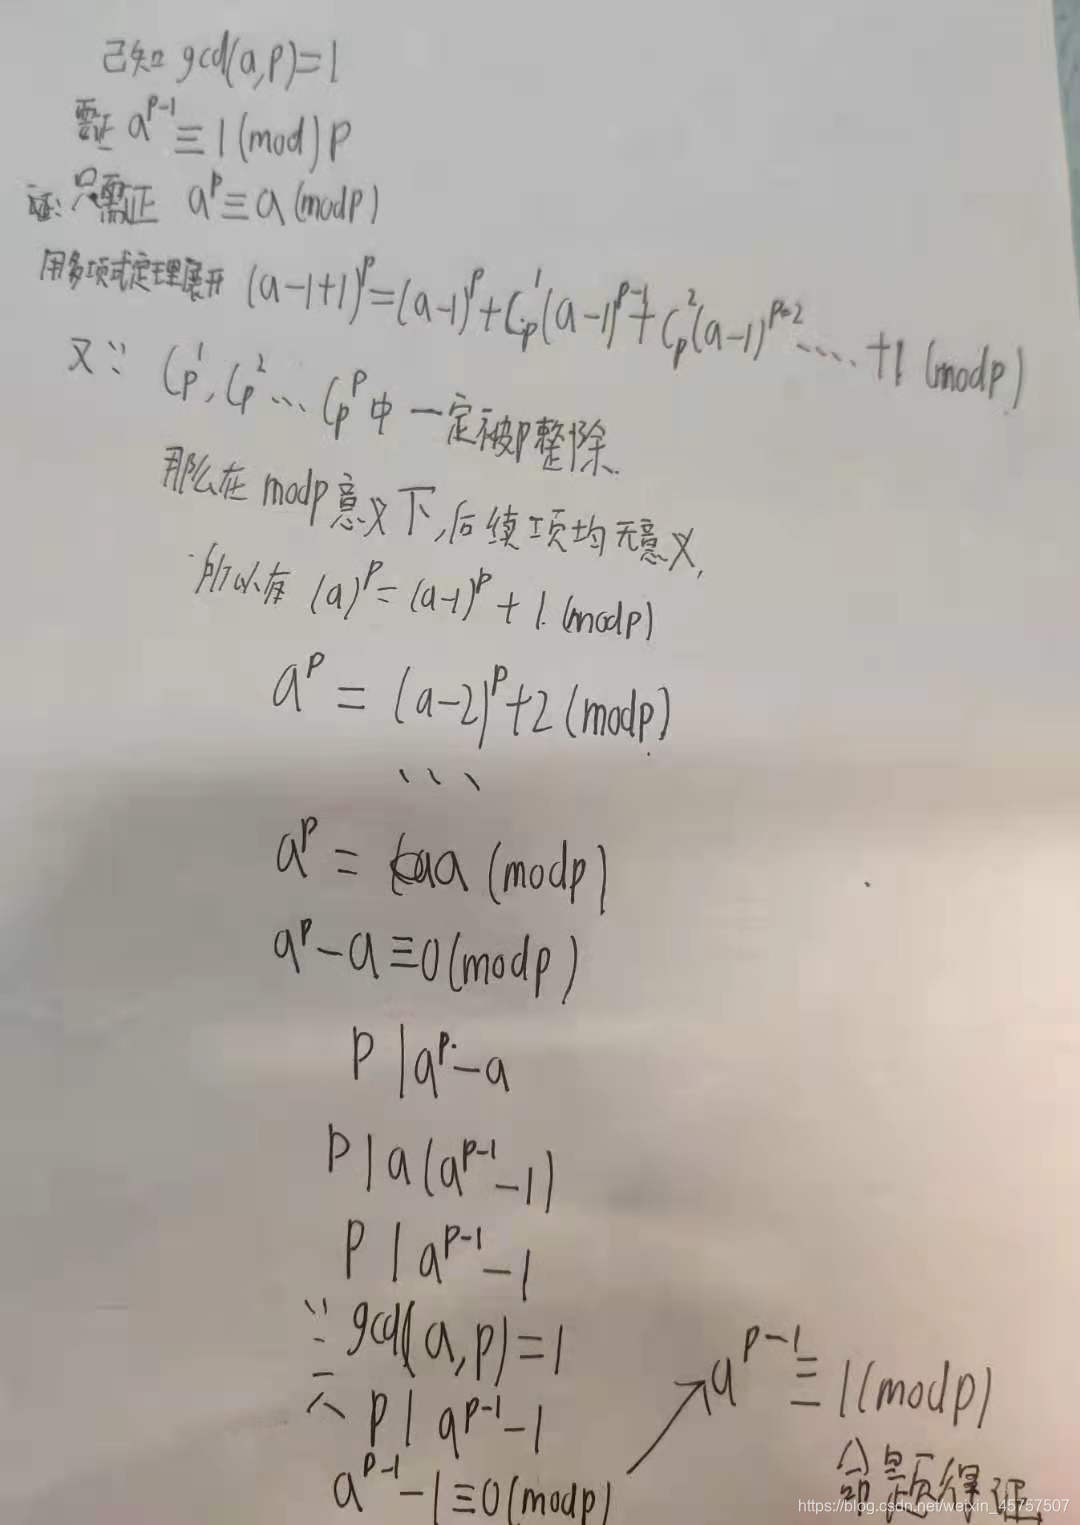 已知 gcd(a,p)=1
需证 a^{p-1} ≡ 1 (mod) p
证: 只需证 a^p ≡ a (mod p)
用多项式定理展开 (a-1+1)^p = (a-1)^p + C_p^1 (a-1)^{p-1} + C_p^2 (a-1)^{p-2} ..... +1 (mod p)
又∵ C_p^1, C_p^2 ... C_p^p 中 一定被p整除.
那么在 mod p 意义下,后续项均无意义,
所以有 (a)^p = (a-1)^p + 1. (mod p)
a^p = (a-2)^p + 2 (mod p)
、、、
a^p = a (mod p)
a^p - a ≡ 0 (mod p)
p | a^p - a
p | a (a^{p-1} - 1)
p | a^{p-1} - 1
∵ gcd(a,p)=1
∴ p | a^{p-1} - 1
a^{p-1} - 1 ≡ 0 (mod p)
↗ a^{p-1} ≡ 1 (mod p)
命题得证
https://blog.csdn.net/weixin_45757507